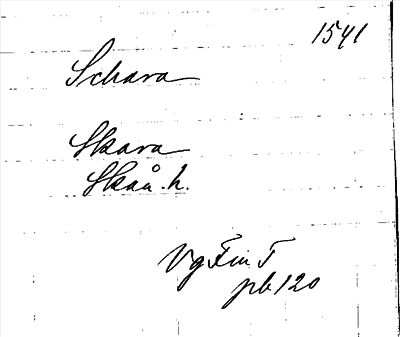 1541
Schara
Skara
Skån. h.
Vg Fin T
pb 120